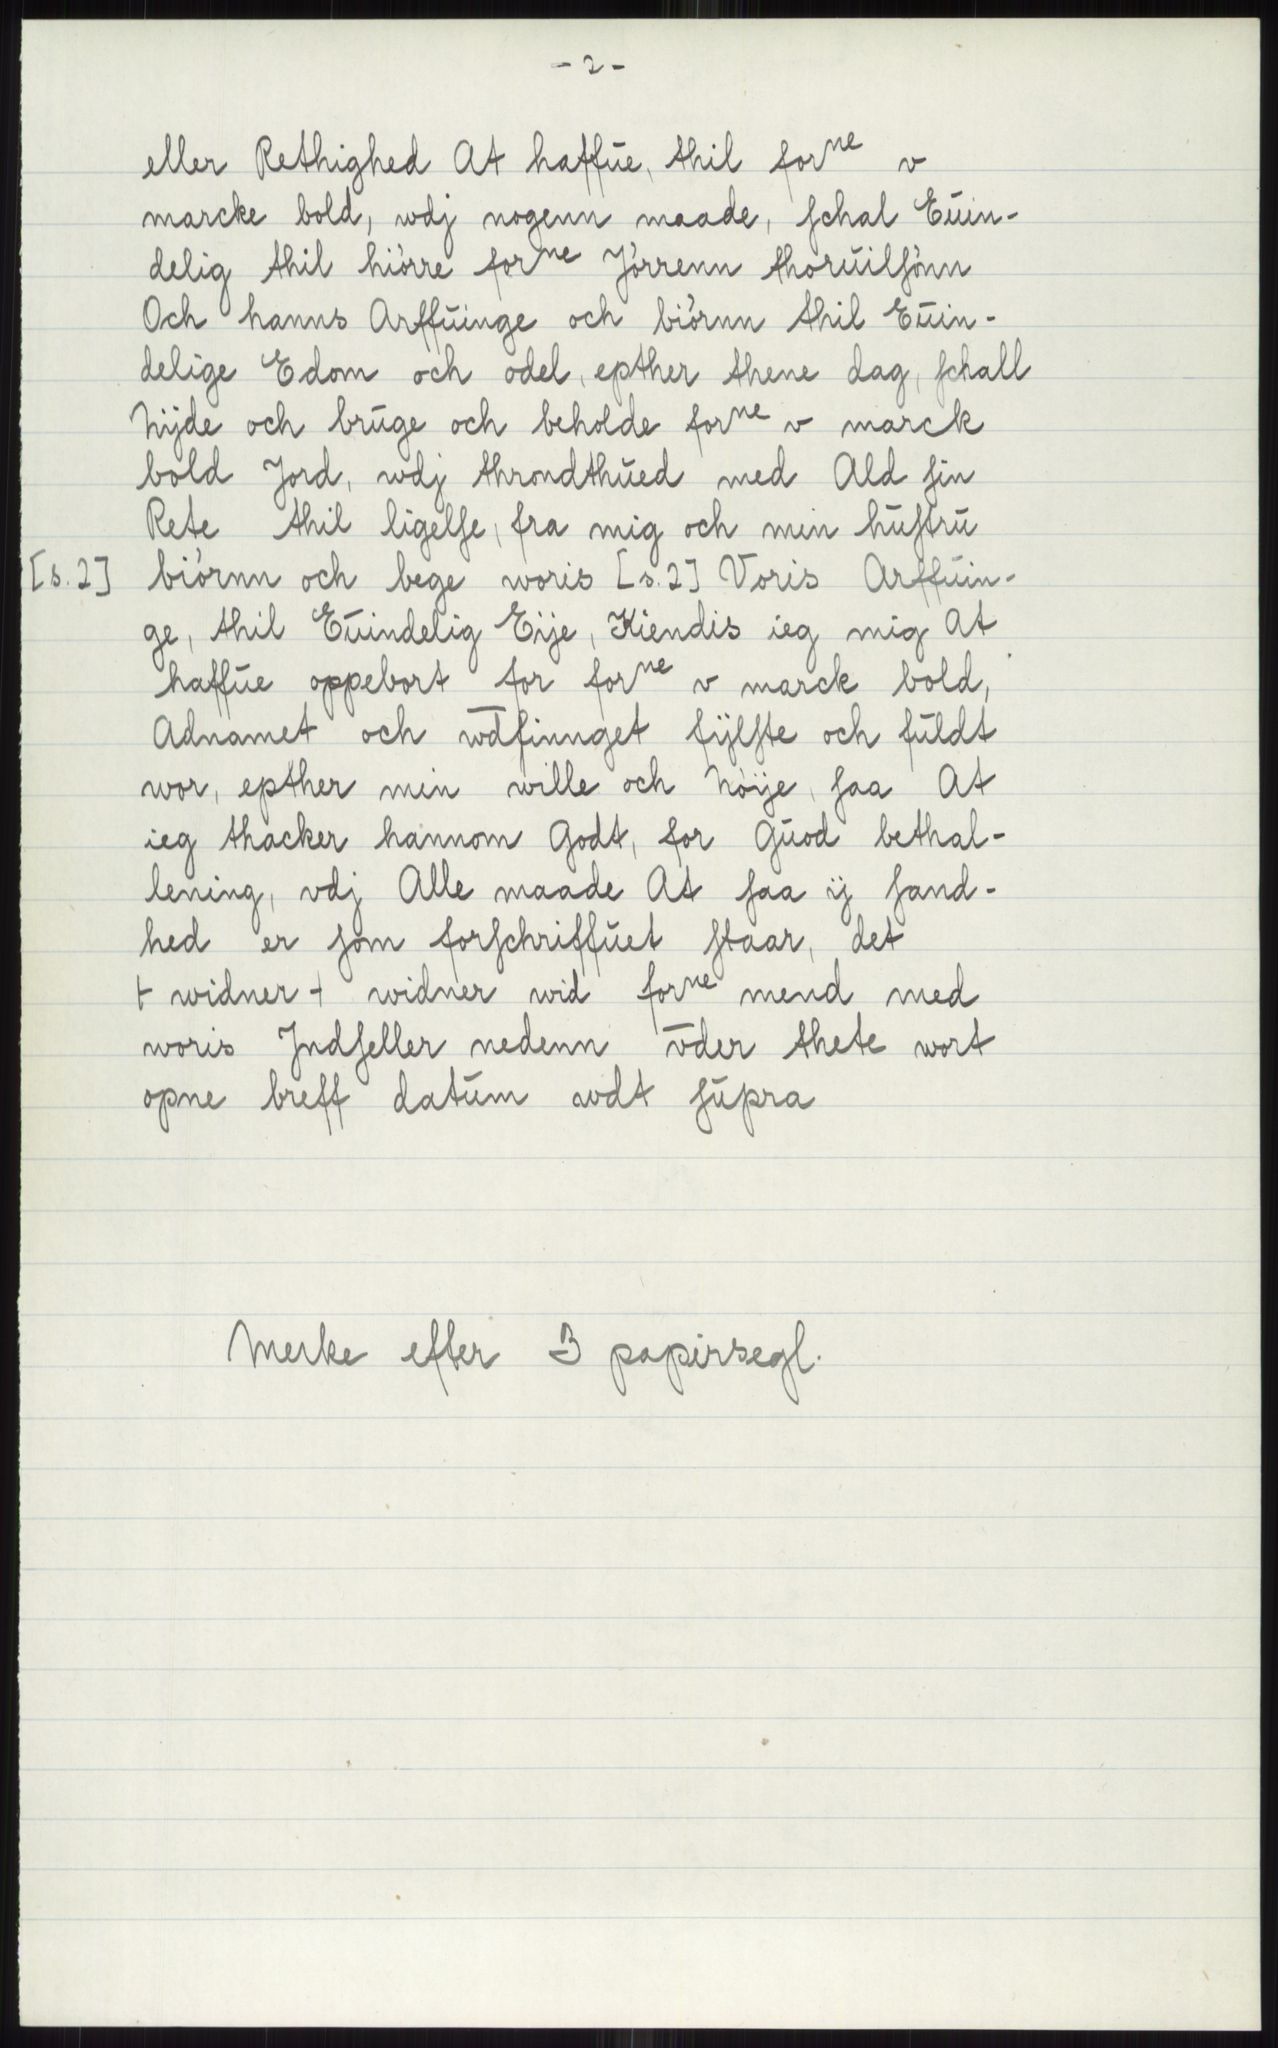 - 2 -
eller Rethighed At haffūe, thil forne v
marcke bold, wdj nogenn maade, schal Eūin-
delig thil hiörre forne Jörrenn thorūilsönn
Och hanns Arffūinge och biörnn thil Eūin-
delige Edom och odel, epther thene dag, schall
Nÿde och brūge och beholde forne v marck
bold Jord, wdj throndthūed med Ald sin
Rete thil ligelse, fra mig och min hūstrū
[s. 2] biörnn och bege woris [s. 2] Voris Arffūin-
ge, thil Eūindelig Eije, Kiendis ieg mig At
haffūe oppebort for forne v marck bold,
Adnamet och wdfinnget fÿlste och fūldt
wor, epther min wille och Nöije, saa At
ieg thacker hannom Godt, for Gūod bethal-
lening, vdj Alle maade At saa ÿ sand-
hed er som forschriffūet staar, det
+ widner + widner wid forne mend med
woris Jndseller nedenn v̄der thete wort
opne breff datūm wdt sūpra
Merke efter 3 papirsegl.